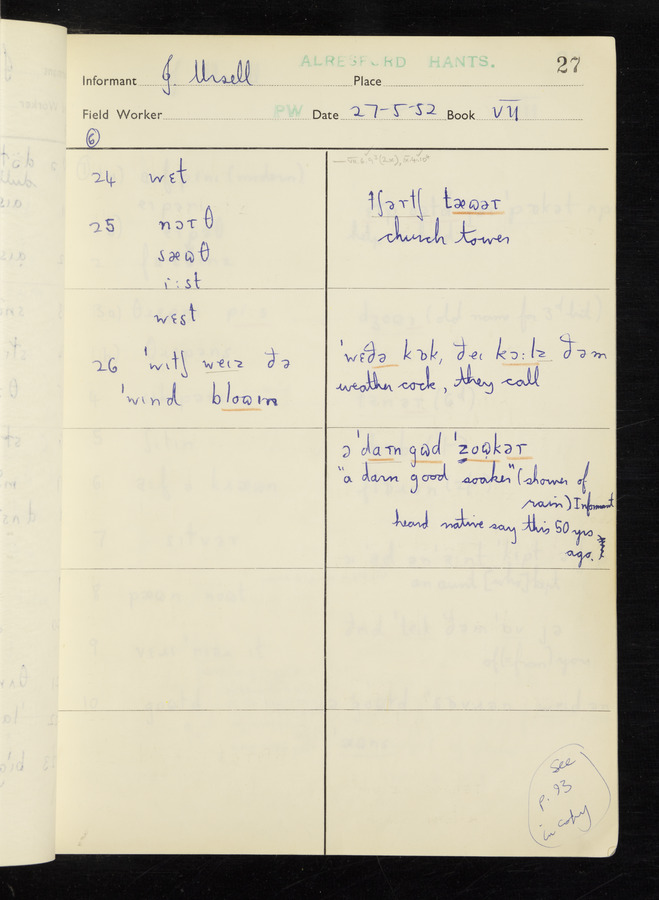 ALRESFORD HANTS.
27
Informant J. Ursell Place
Field Worker PW Date 27-5-52 Book VII
6
24 wɛt
25 nɔrθ
sæɷθ
i:st
wɛst
26 ˈwɪtʃ weiz ðə
ˈwind bloɷɪn
tʃərtʃ tæɷər
church tower
ˈwɛðə kɒk, ðei kɔ:lz ðəm
weather cock, they call
ə ˈdarn gɷd ˈzoɷkər
"a darn good soaker" (shower of
rain) Informant
heard native say this 50 yrs
ago.
see
p. 93
in copy